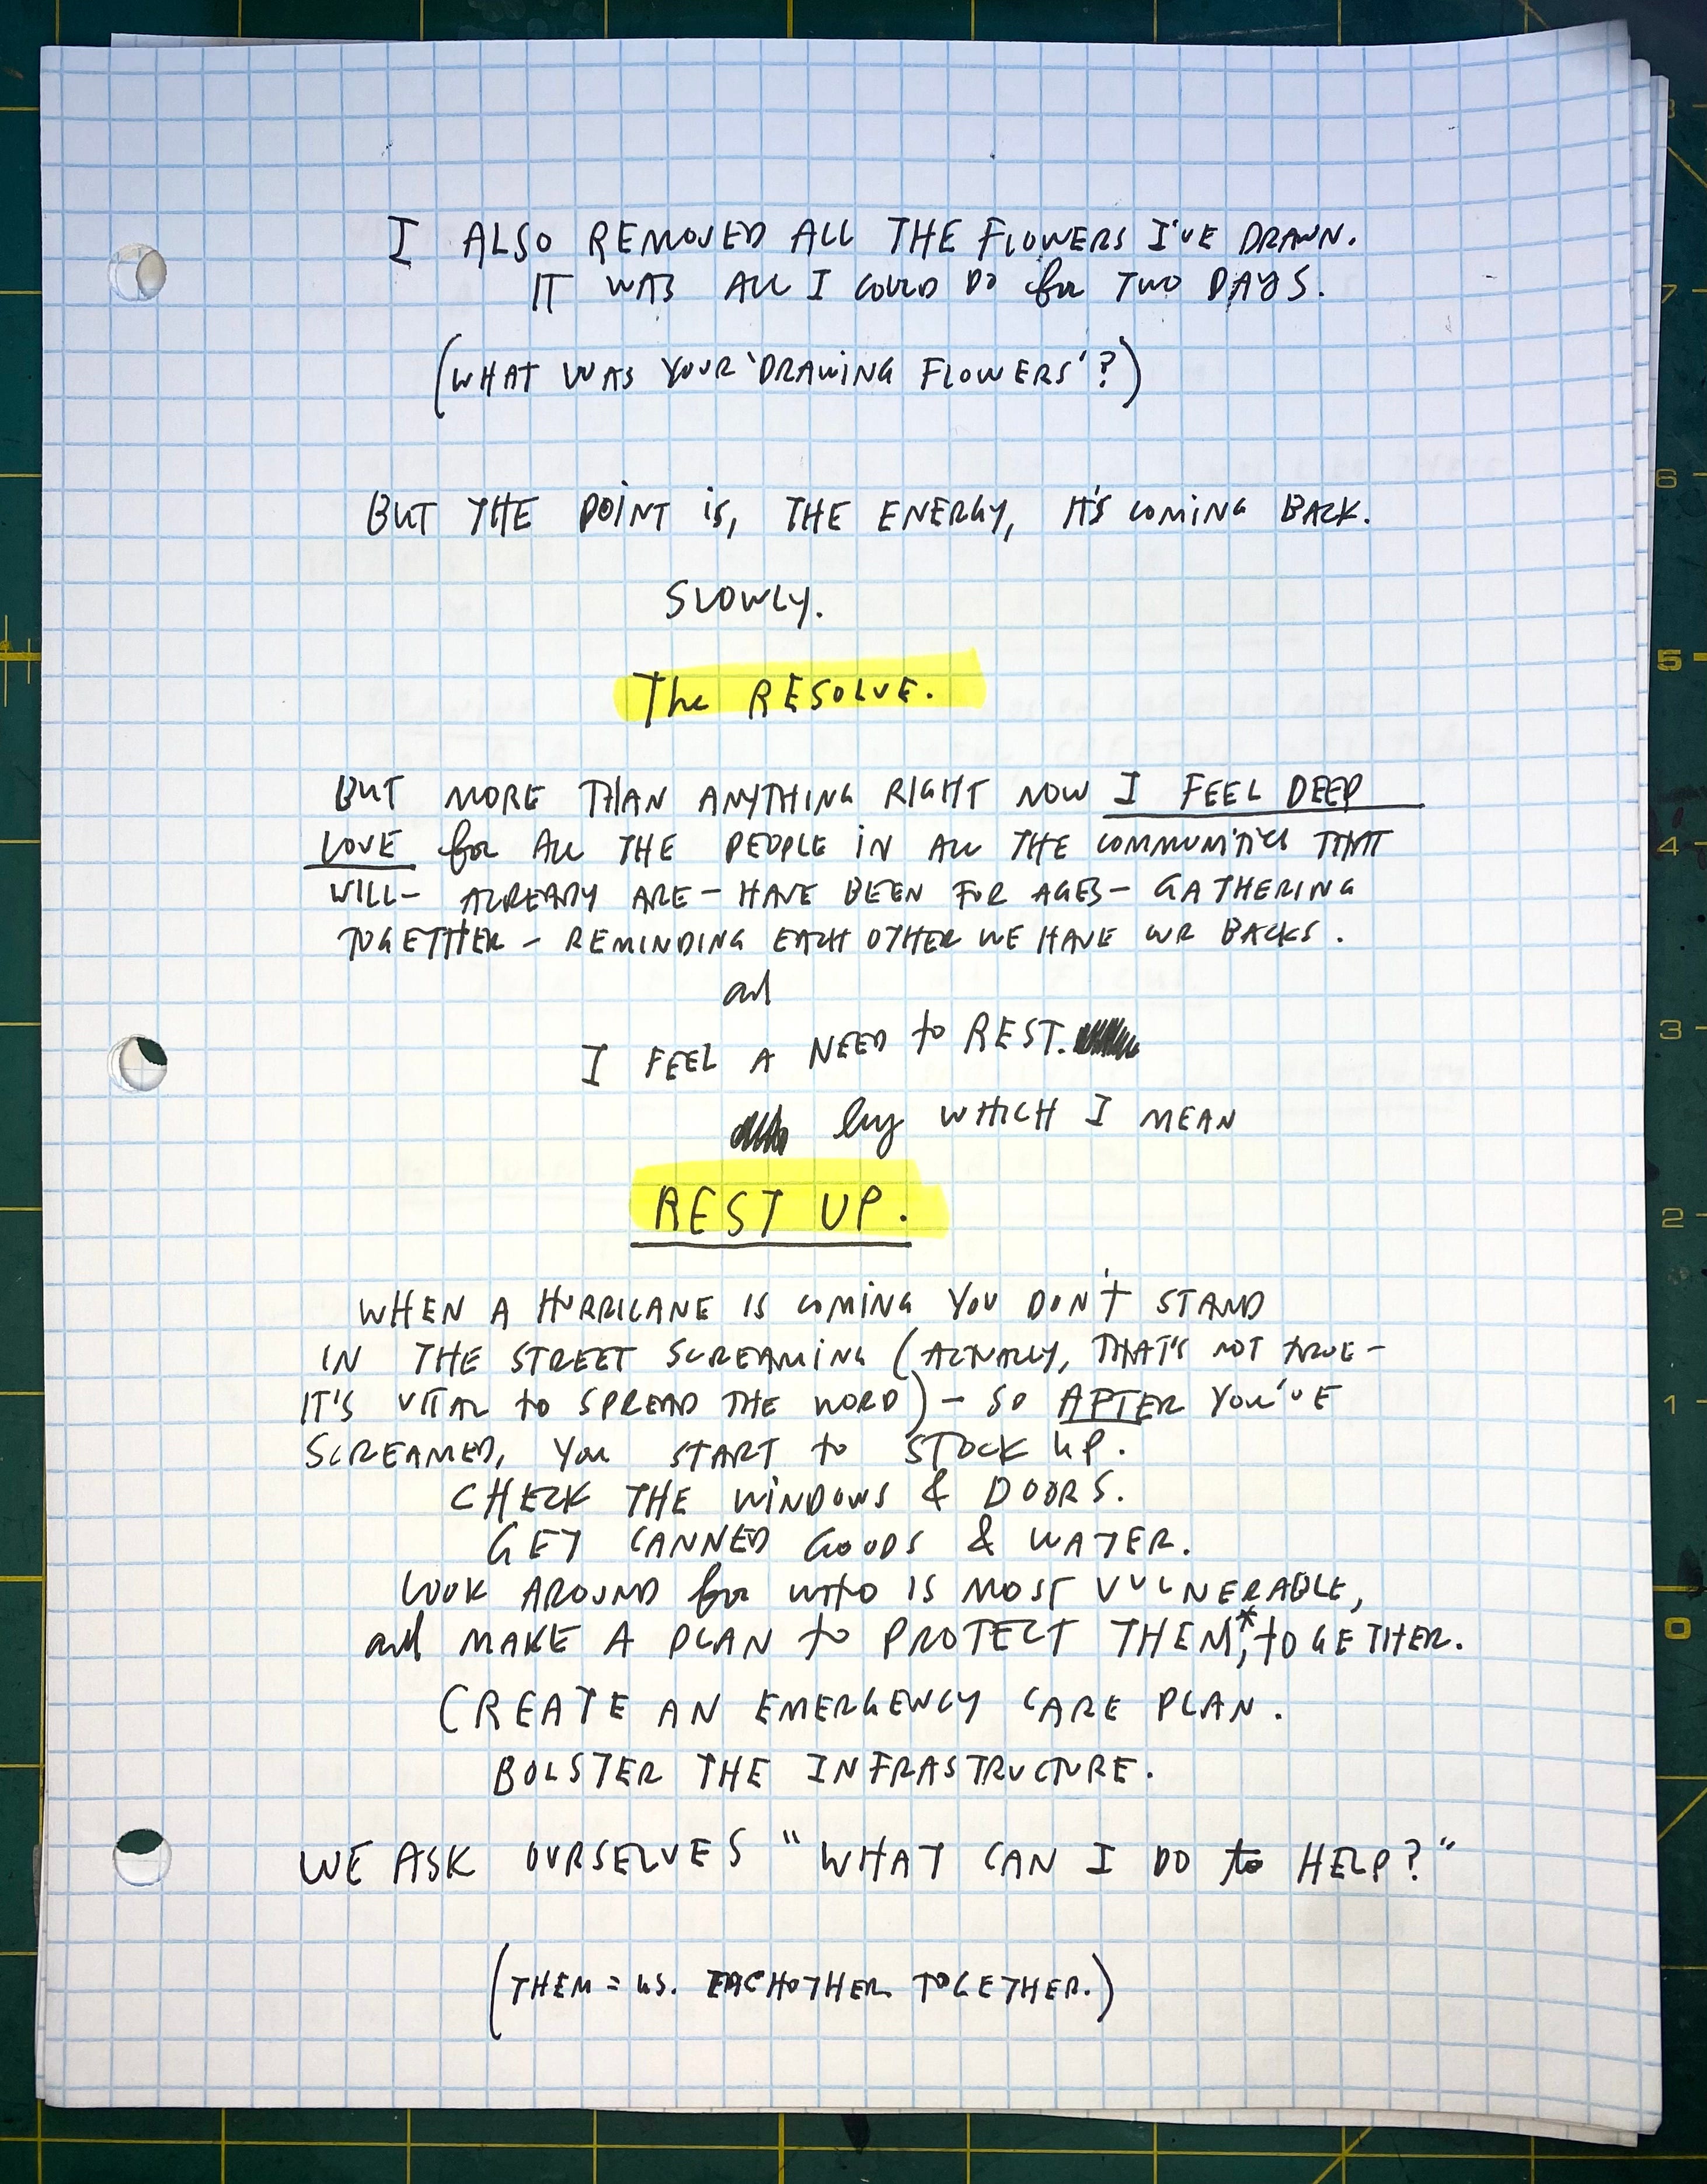 I ALSO REMOVED ALL THE FLOWERS I'VE DRAWN.
IT WAS ALL I COULD DO for TWO DAYS.
(WHAT WAS YOUR 'DRAWING FLOWERS'?)
BUT THE POINT is, THE ENERGY, IT'S COMING BACK.
SLOWLY.
The RESOLVE.
BUT MORE THAN ANYTHING RIGHT NOW I FEEL DEEP
LOVE for ALL THE PEOPLE IN ALL THE COMMUNITIES THAT
WILL - ALREADY ARE - HAVE BEEN FOR AGES - GATHERING
TOGETHER - REMINDING EACH OTHER WE HAVE OUR BACKS.
and
I FEEL A NEED to REST.
by WHICH I MEAN
REST UP.
WHEN A HURRICANE IS COMING YOU DON'T STAND
IN THE STREET SCREAMING (ACTUALLY, THAT'S NOT TRUE -
IT'S VITAL to SPREAD THE WORD) - SO AFTER YOU'VE
SCREAMED, YOU START to STOCK UP.
CHECK THE WINDOWS & DOORS.
GET CANNED GOODS & WATER.
LOOK AROUND for WHO IS MOST VULNERABLE,
and MAKE A PLAN to PROTECT THEM*, TOGETHER.
CREATE AN EMERGENCY CARE PLAN.
BOLSTER THE INFRASTRUCTURE.
WE ASK OURSELVES "WHAT CAN I DO to HELP?"
(THEM = US. EACHOTHER TOGETHER.)
8
7
6
5
4
3
2
1
0